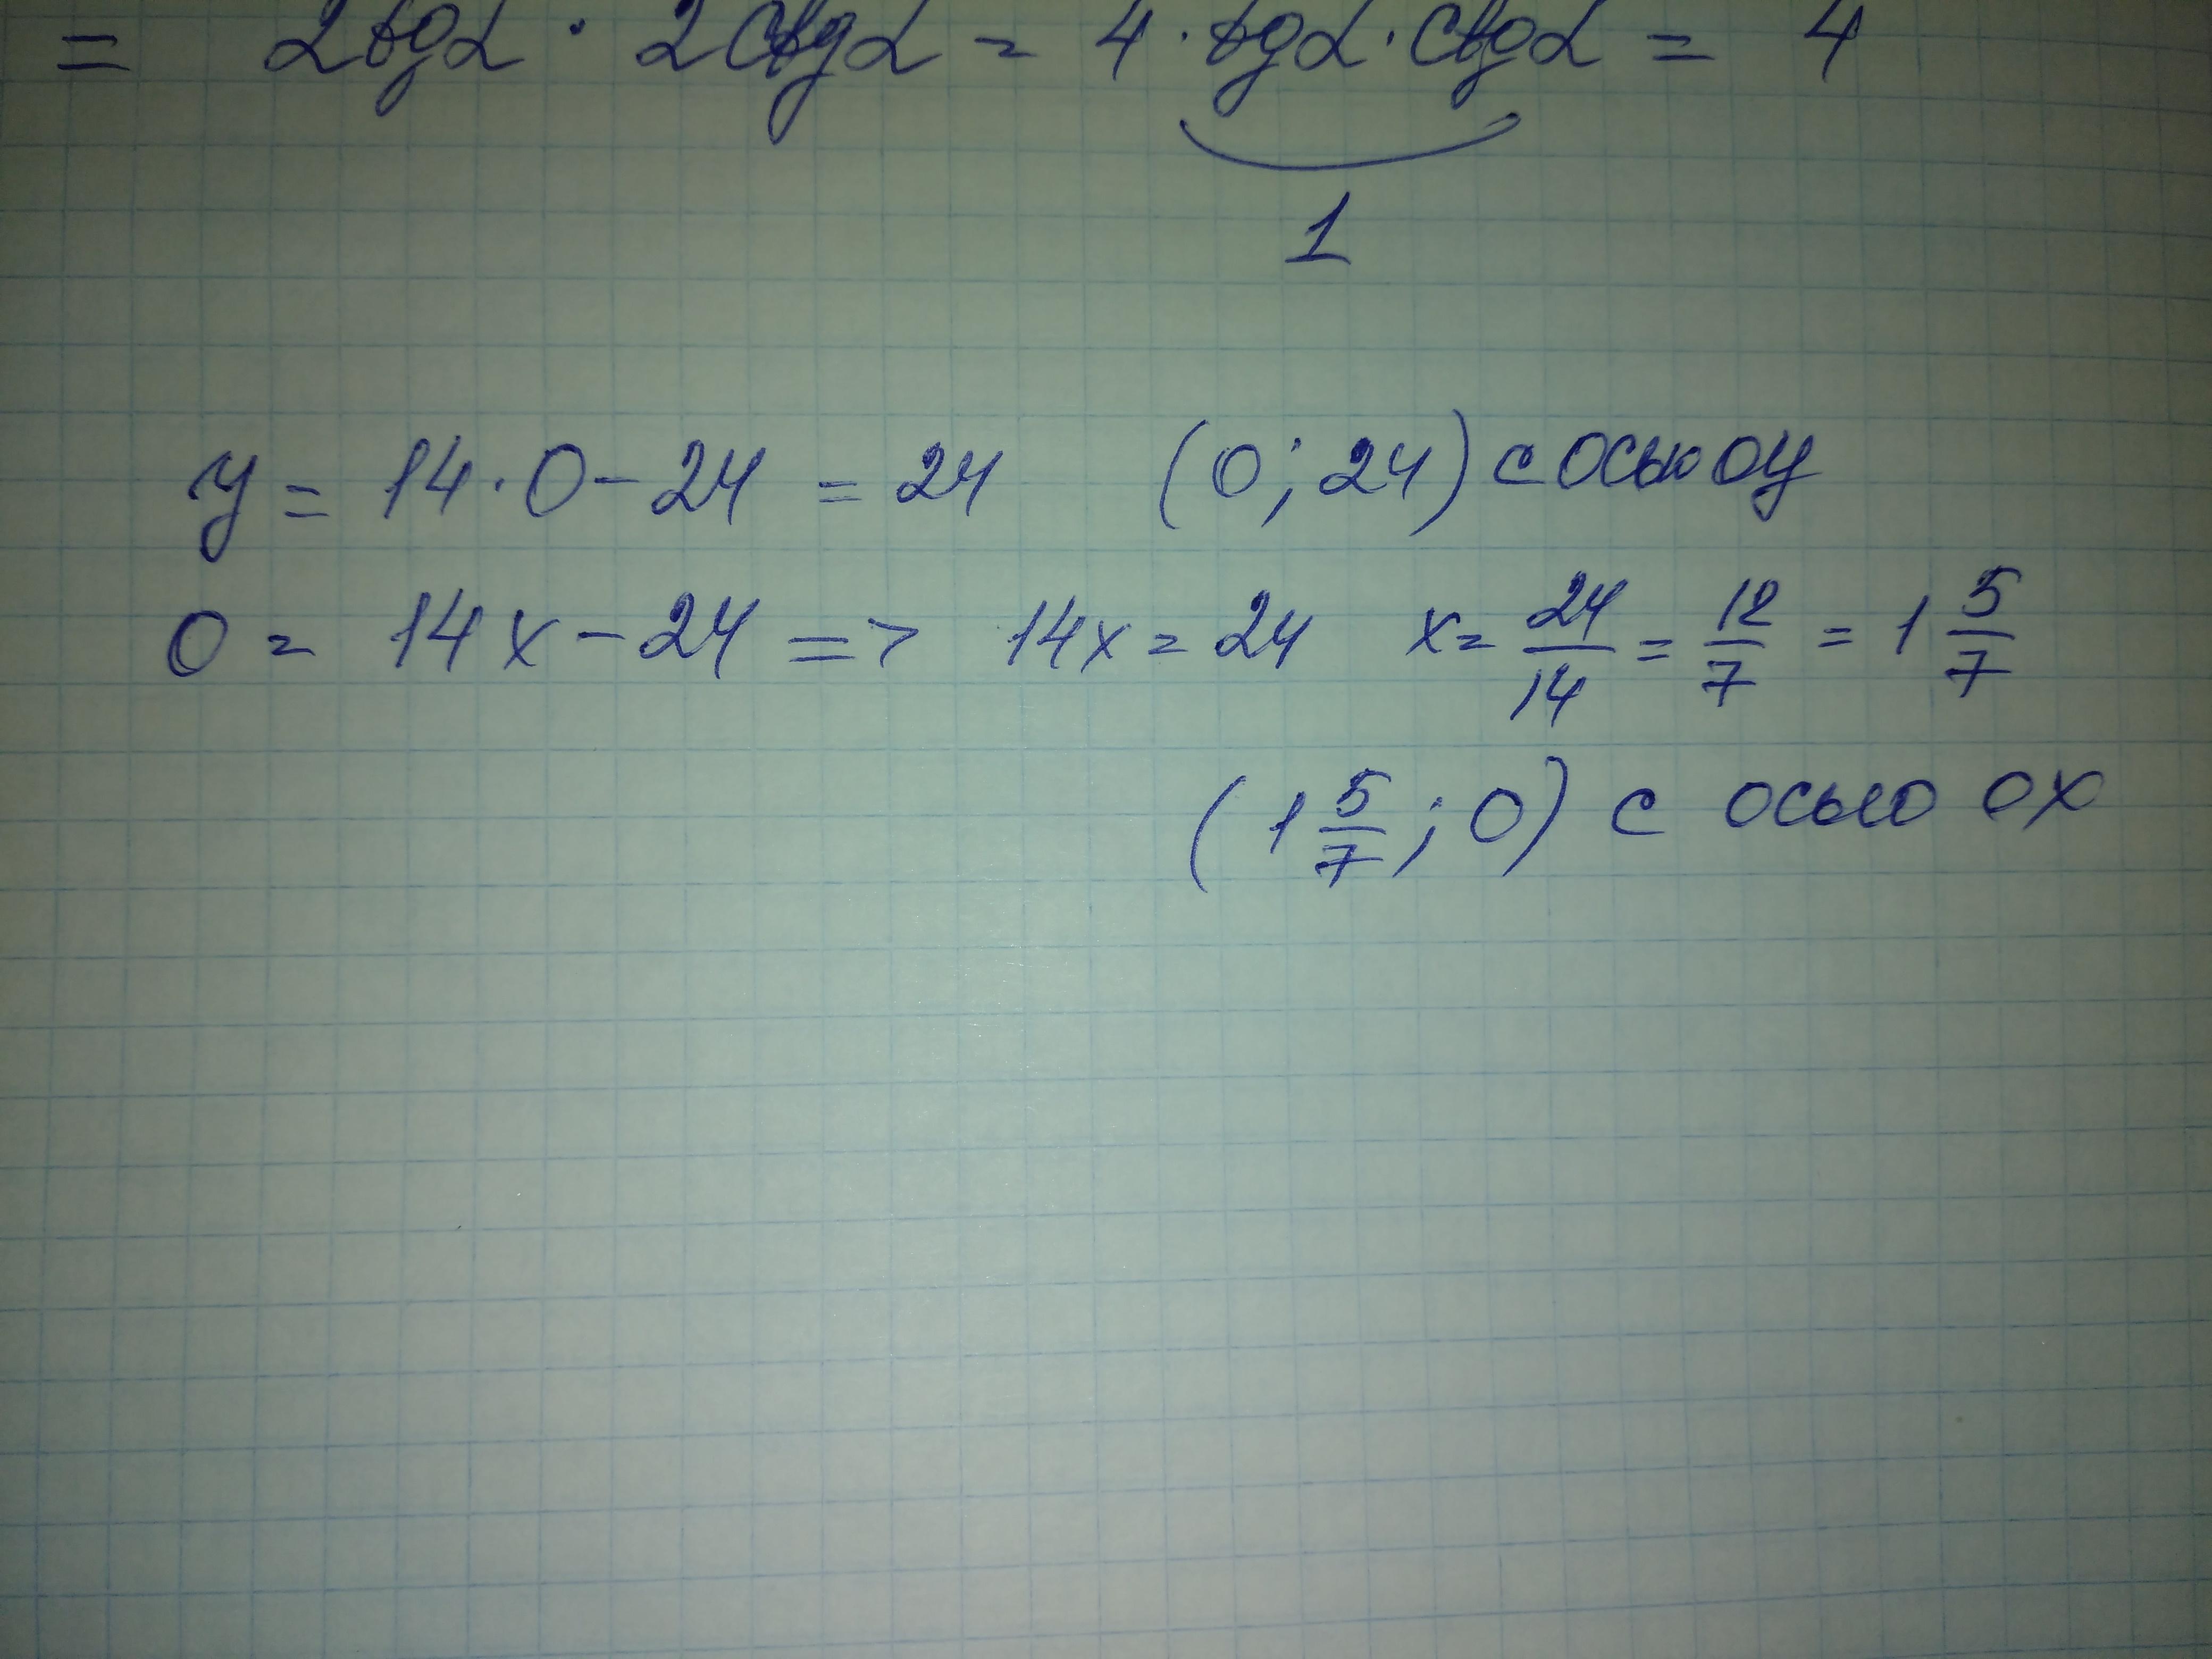 = 2tgα · 2ctgα = 4 · tgα · ctgα = 4
1
y = 14 · 0 - 24 = 24 (0; 24) с осью оу
0 = 14x - 24 => 14x = 24 x = 24/14 = 12/7 = 1 5/7
(1 5/7; 0) с осью ох